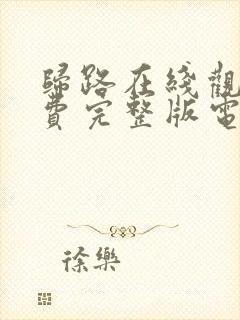 歸路在綫觀
費完整版電
徐樂